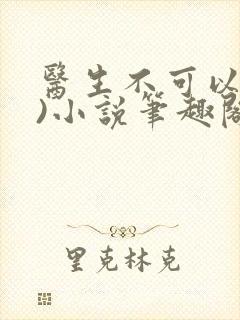 醫生不可以
)小說筆趣閣
里克林克